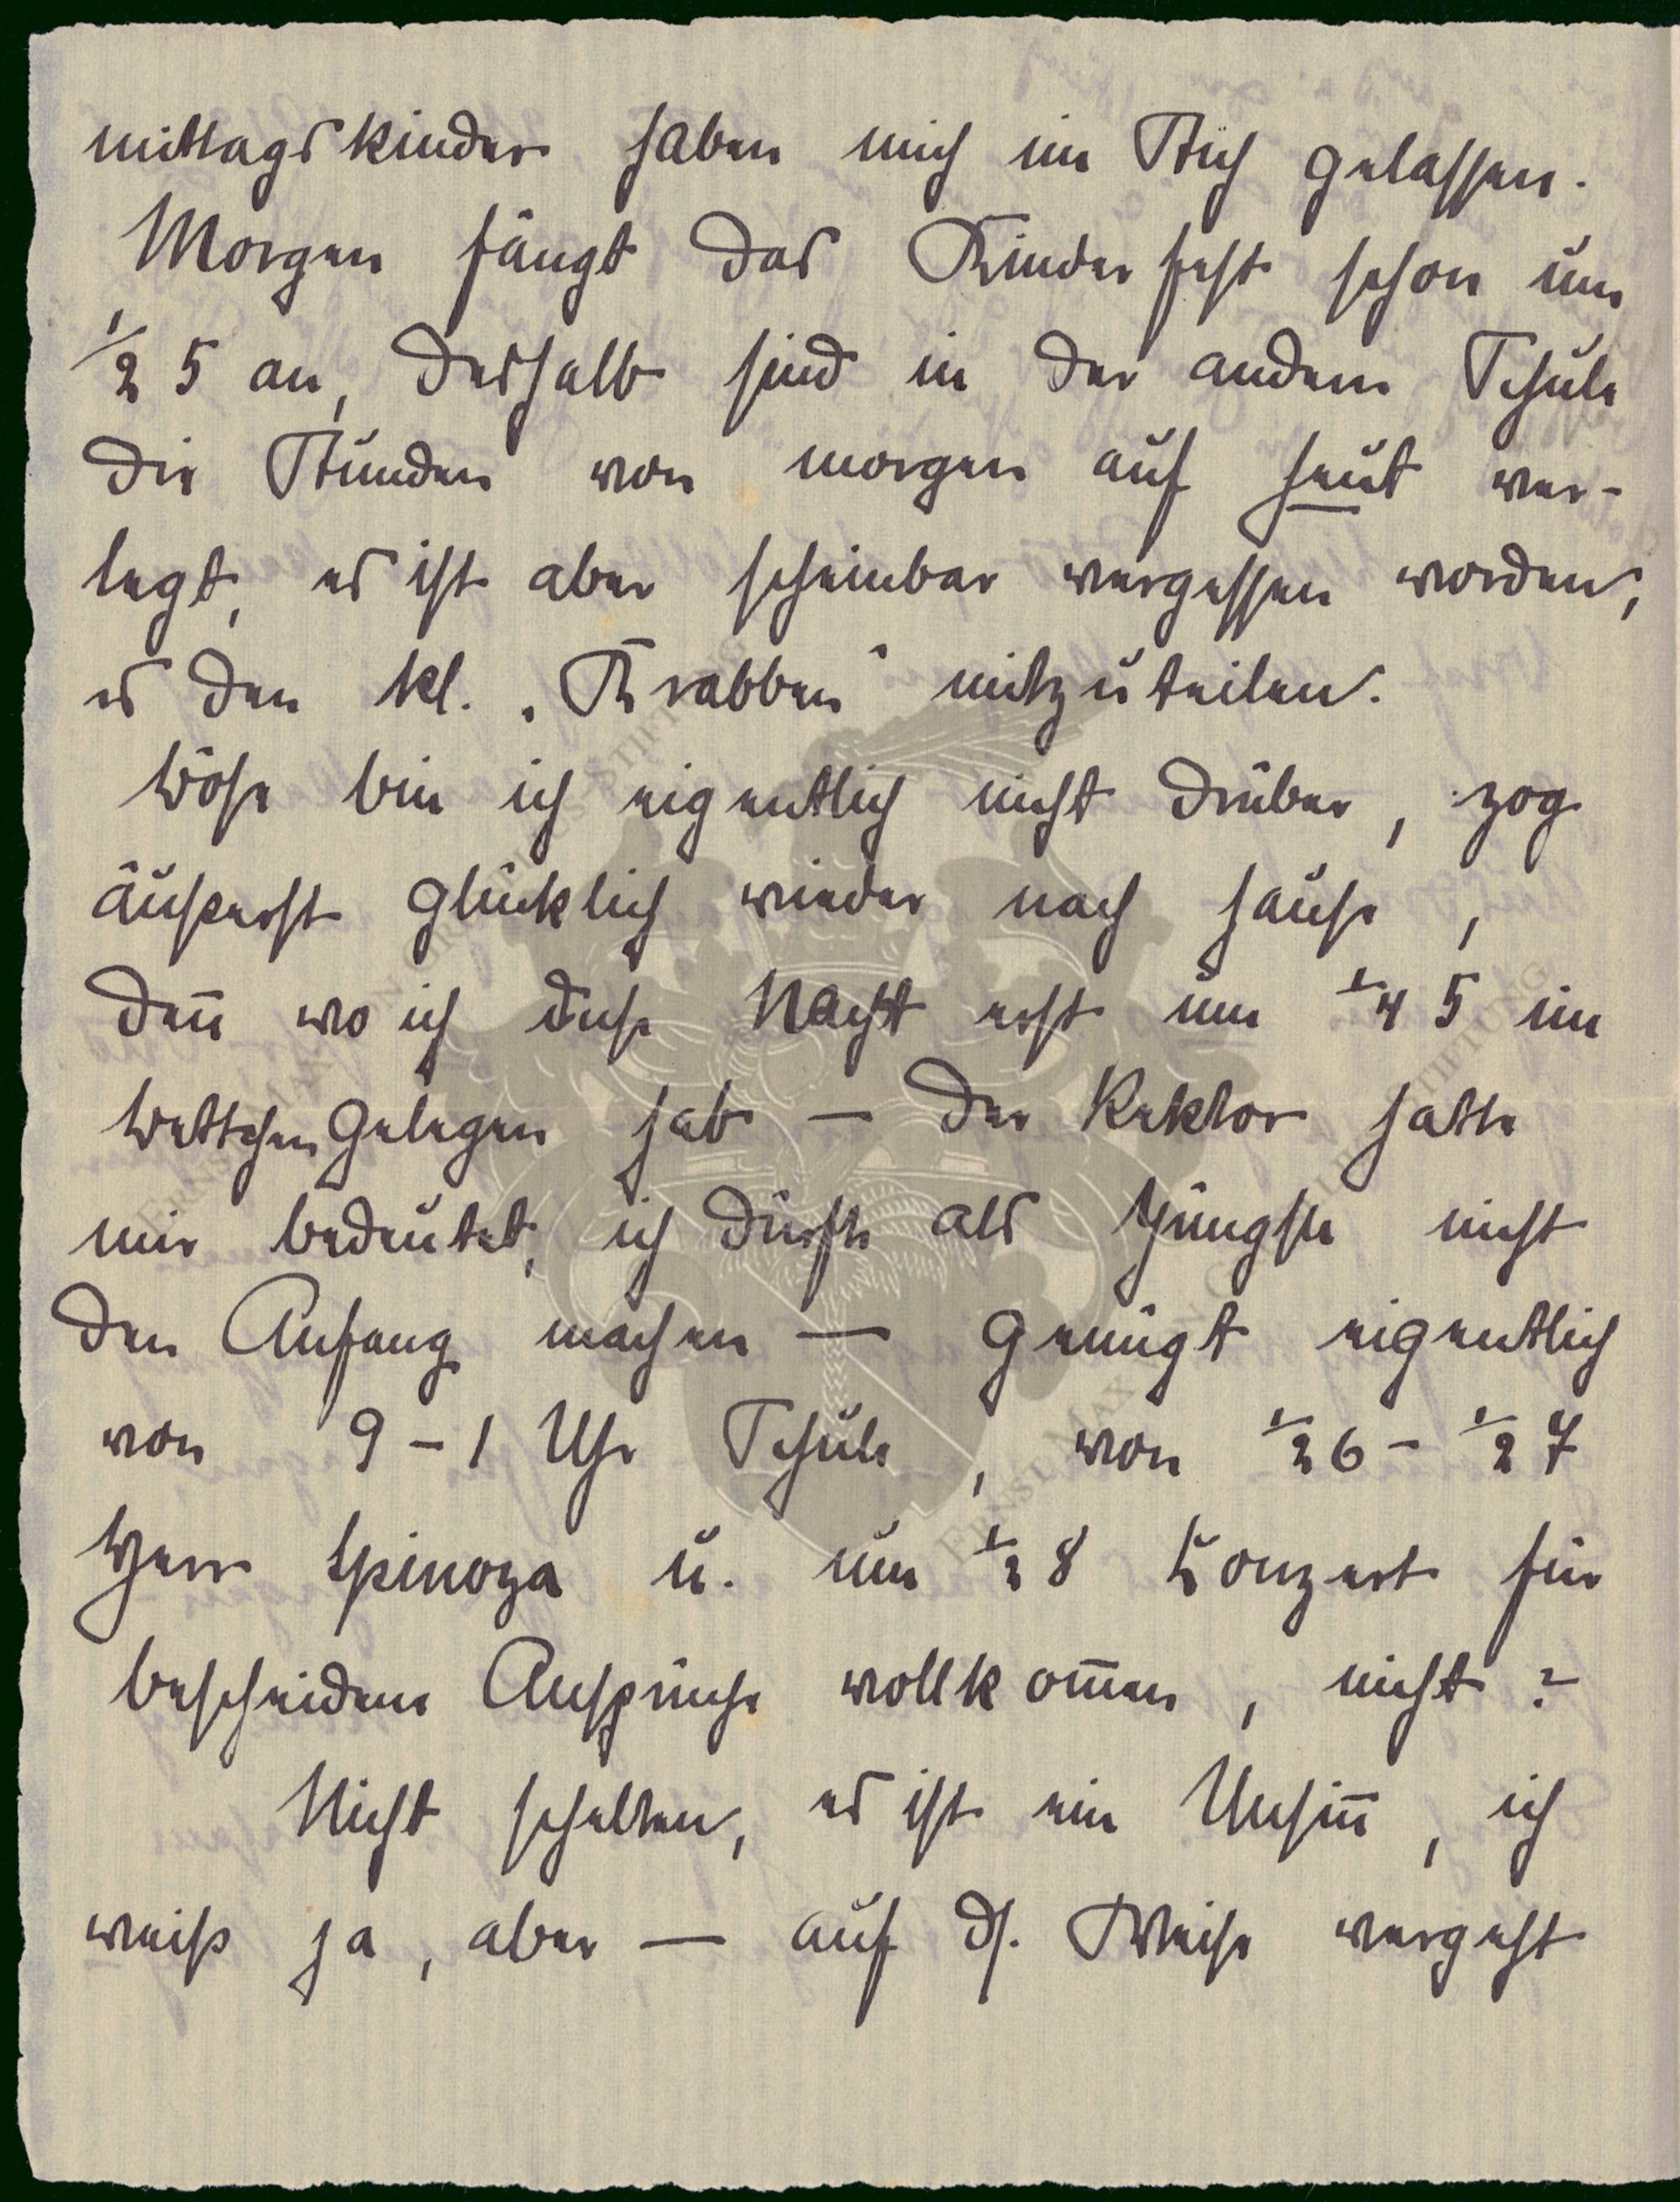 mittagskinder haben mich im Stich gelassen.
Morgen fängt das Kinderfest schon um
1/2 5 an, deshalb sind in der andern Schule
die Stunden von morgen auf heut ver-
legt, es ist aber scheinbar vergessen worden,
es den kl. „Krabben" mitzuteilen.
Böse bin ich eigentlich nicht drüber, zog
äußerst glücklich wieder nach Hause,
deñ wo ich diese Nacht erst um 1/4 5 im
Bettchen gelegen hab — der Rektor hatte
mir bedeutet, ich dürfte als Jüngste nicht
den Anfang machen — genügt eigentlich
von 9 – 1 Uhr Schule, von 1/2 6 – 1/2 7
Herr Spinoza u. um 1/2 8 Konzert für
bescheidene Ansprüche vollkom̃en, nicht?
Nicht schelten, es ist ein Unsiñ, ich
weiß ja, aber — auf ds. Weise vergeht